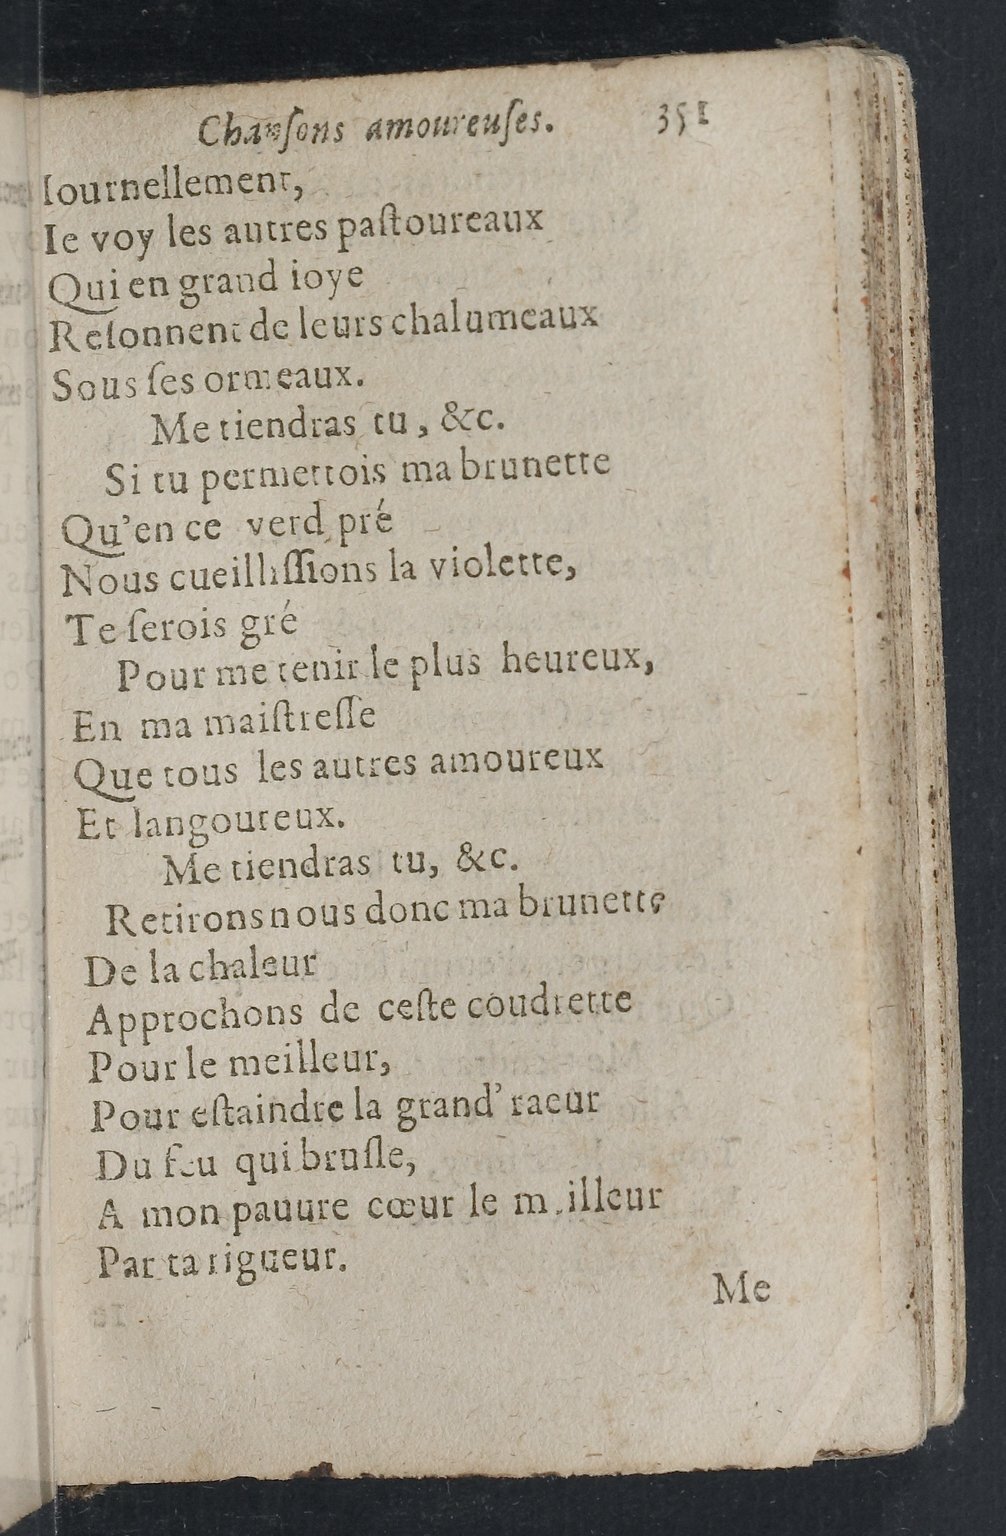 Chanſons amoureuſes. 351
Iournellement,
Ie voy les autres paſtoureaux
Qui en grand ioye
Reſonnent de leurs chalumeaux
Sous ſes ormeaux.
Me tiendras tu, &c.
Si tu permettois ma brunette
Qu'en ce verd pré
Nous cueilliſſions la violette,
Te ſerois gré
Pour me tenir le plus heureux,
En ma maiſtreſſe
Que tous les autres amoureux
Et langoureux.
Me tiendras tu, &c.
Retirons nous donc ma brunette
De la chaleur
Approchons de ceſte coudrette
Pour le meilleur,
Pour eſtaindre la grand' raeur
Du feu qui bruſle,
A mon pauure cœur le m illeur
Par ta rigueur.
Me